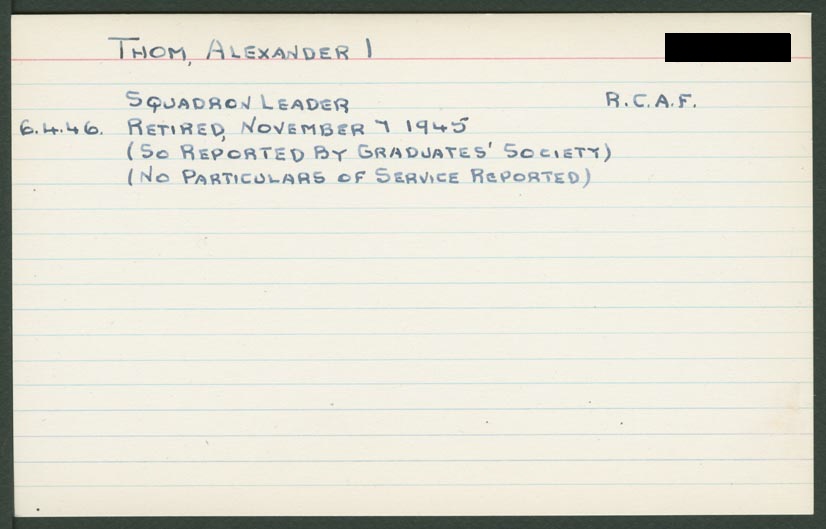 THOM, ALEXANDER I
SQUADRON LEADER R.C.A.F.
6.4.46. RETIRED, NOVEMBER 7 1945
(SO REPORTED BY GRADUATES' SOCIETY)
(NO PARTICULARS OF SERVICE REPORTED)